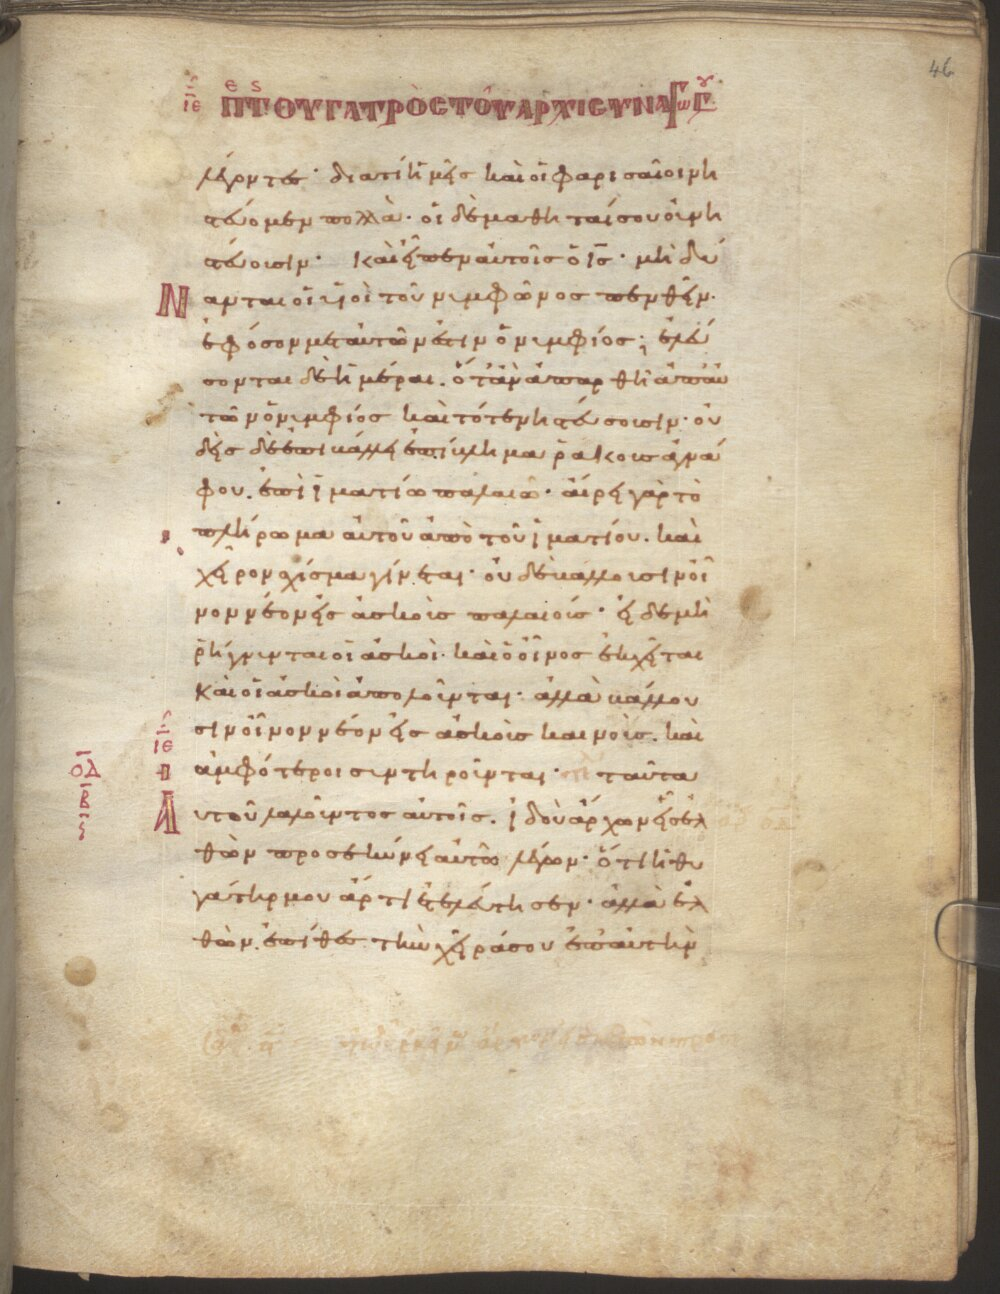 46
ιε πε τς θυγατρὸς τοῦ ἀρχισυναγώγου
λέγοντες· διατί ἡμεῖς καὶ οἱ φαρισαῖοι νη
στεύομεν πολλὰ· οἱ δὲ μαθηταί σου οὐ νη
στεύουσιν· Καὶ εἶπεν αὐτοῖς ὁ ΙΣ· μὴ δύ
Νανται οἱ υἱοὶ τοῦ νυμφῶνος πενθεῖν·
ἐφόσον μετ αὐτῶν ἐστιν ὁ νυμφίος; ἐλεύ
σονται δὲ ἡμέραι. ὅταν ἀπαρθῆ ἀπ αὐ
τῶν ὁ νυμφίος καὶ τότε νηστεύσουσιν· οὐ
δεὶς δὲ ἐπιβάλλει ἐπίβλημα ῥάκους ἀγνά
φου. ἐπὶ ἱματίω παλαιῶ· αἴρει γὰρ τὸ
πλήρωμα αὐτοῦ ἀπὸ τοῦ ἱματίου. καὶ
χεῖρον σχίσμα γίνεται· οὐδὲ βάλλουσιν οἶ
νον νέον εἰς ἀσκοὺς παλαιούς· εἰ δὲ μὴ
ῥήγνυνται οἱ ἀσκοὶ· καὶ ὁ οἶνος ἐκχεῖται
Καὶ οἱ ἀσκοὶ ἀπολοῦνται· ἀλλὰ βάλλου
σιν οἶνον νέον εἰς ἀσκοὺς καινοὺς. καὶ
ιε
ἀμφότεροι συντηροῦνται· ταῦτα
ΟΔ
Β
Αυτοῦ λαλοῦντος αὐτοῖς. ἰδοὺ ἄρχων εἷς ἐλ
θὼν προσεκύνει αὐτῶ λέγων· ὅτι ἡ θυ
γάτηρ μου ἄρτι ἐτελεύτησεν· ἀλλὰ ἐλ
θὼν. ἐπίθες τὴν χεῖρά σου ἐπ αὐτὴν